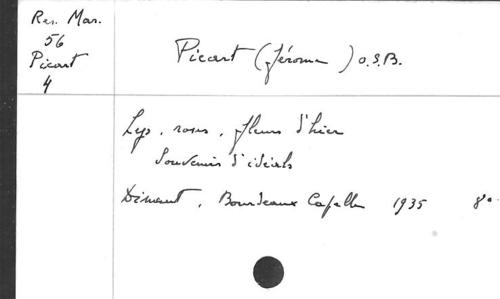 Res. Mar.
56
Picart
4
Picart (Jérome) O.S.B.
Lys, roses, fleurs d'hier
Souvenirs d'idéals
Dinant, Bourdeaux Capelle 1935 8°